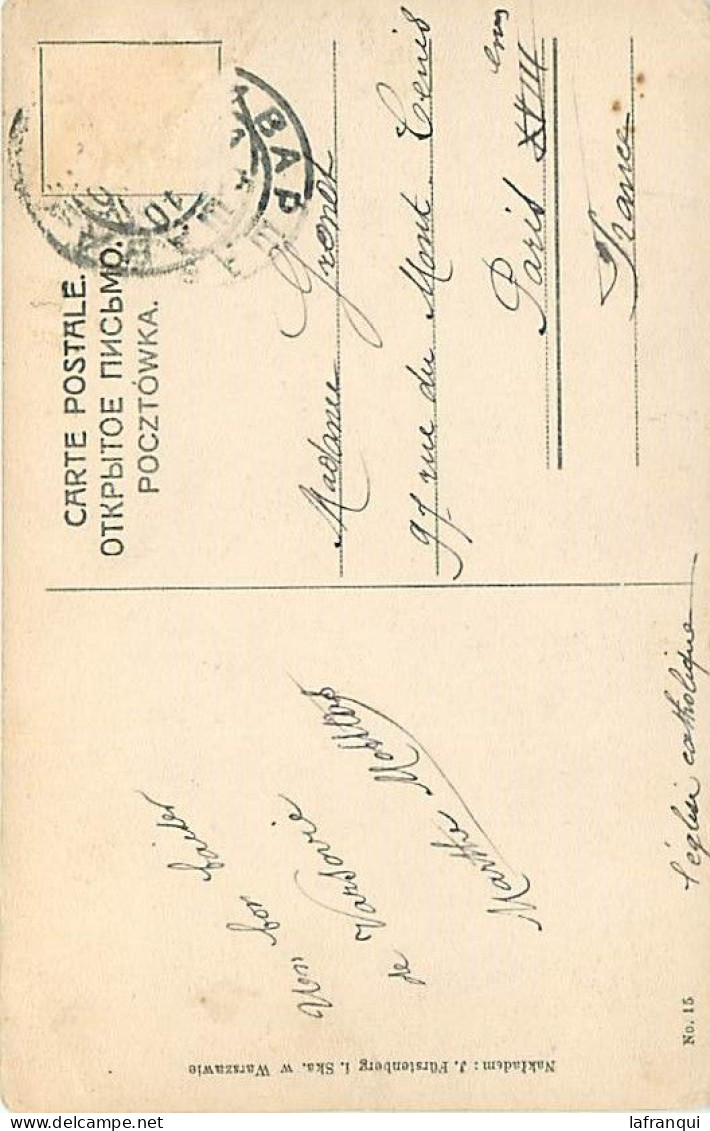 CARTE POSTALE.
ОТКРЫТОЕ ПИСЬМО.
POCZTÓWKA.
ВАР
10
Madame Grenet
97 rue du Mont Cenis
Paris XVIII ems
France
bon baiser
de Varsovie
Marthe
l'église catholique
No. 15
Nakładem: J. Fürstenberg i. Ska. w Warszawie
lafranqui